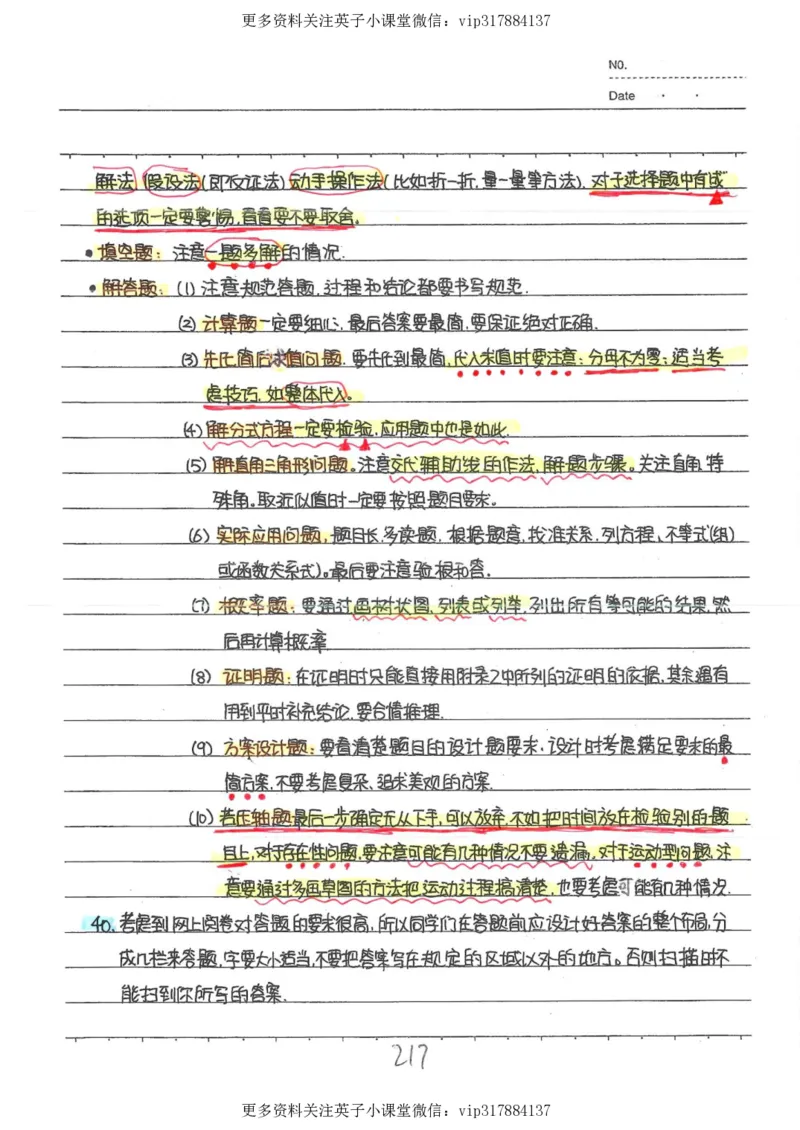 更多资料关注英子小课堂微信：vip317884137
NO.
Date
解法，假设法(即反证法)动手操作法(比如折一折，量一量等方法)．对于选择题中有“或”
的选项一定要警惕，看看要不要取舍。
•填空题：注意一题多解的情况．
•解答题：(1)注意规范答题，过程和结论都要书写规范．
(2)计算题一定要细心，最后答案要最简，要保证绝对正确．
(3)先化简后求值问题，要先化到最简，代入求值时要注意：分母不为零；适当考
虑技巧，如整体代入。
(4)解分式方程一定要检验，应用题中也是如此．
(5)解直角三角形问题。注意交代辅助线的作法，解题步骤。关注直角、特
殊角。取近似值时一定要按照题目要求。
(6)实际应用问题，题目长，多读题，根据题意，找准关系，列方程、不等式(组)
或函数关系式)。最后要注意验根和答．
(7)概率题：要通过画树状图、列表或列举，列出所有等可能的结果，然
后再计算概率
(8)证明题：在证明时只能直接用附录2中所列的证明的依据，其余遇有
用到平时补充结论，要合情推理．
(9)方案设计题：要看清楚题目的设计题要求，设计时考虑满足要求的最
简方案，不要考虑复杂、追求美观的方案．
(10)若压轴题最后一步确定无从下手，可以放弃，不如把时间放在检验别的题
目上，对于存在性问题，要注意可能有几种情况不要遗漏，对于运动型问题，注
意要通过多画草图的方法把运动过程搞清楚，也要考虑可能有几种情况．
40．考虑到网上阅卷对答题的要求很高，所以同学们在答题前应设计好答案的整个布局，分
成几栏来答题，字要大小适当，不要把答案写在规定的区域以外的地方。否则扫描时不
能扫到你所写的答案．
217
更多资料关注英子小课堂微信：vip317884137